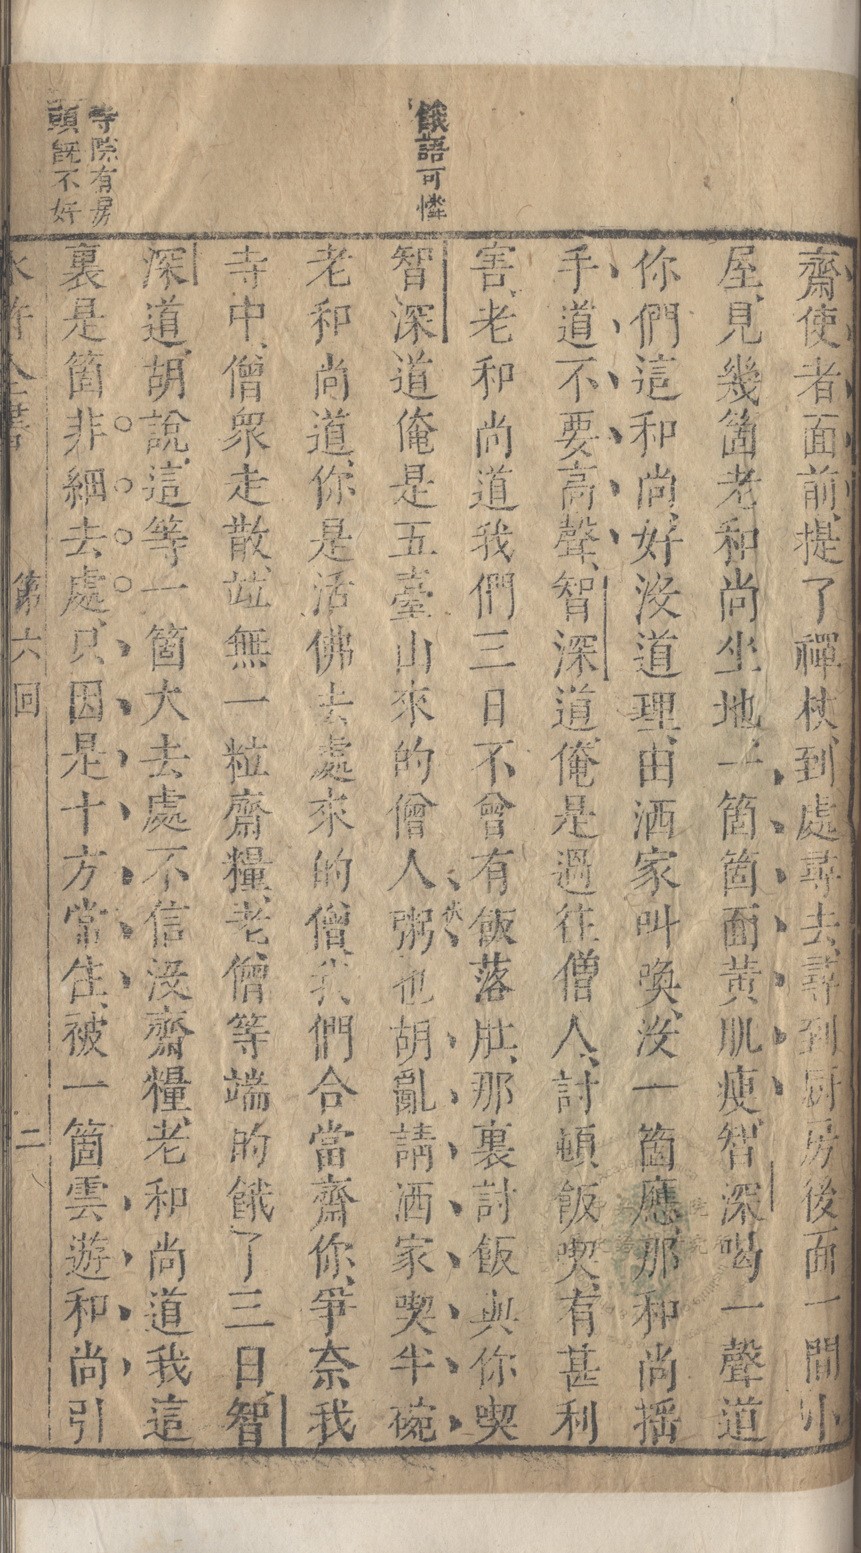 齋使者面前提了禪杖到處尋去尋到厨房後面一間小
屋見幾箇老和尚坐地一箇箇面黃肌瘦智深喝一聲道
你們這和尚好沒道理由洒家叫喚沒一箇應那和尚搖
手道不要高聲智深道俺是過往僧人討頓飯喫有甚利
害老和尚道我們三日不曾有飯落肚那裏討飯與你喫
餓語可憐
智深道俺是五臺山來的僧人粥也胡亂請洒家喫半碗
老和尚道你是活佛去處來的僧我們合當齋你爭奈我
寺中僧衆走散並無一粒齋糧老僧等端的餓了三日智
深道胡說這等一箇大去處不信沒齋糧老和尚道我這
寺院有房
頭旣不好
裏是箇非細去處只因是十方常住被一箇雲遊和尚引
水滸全書 第六回 二